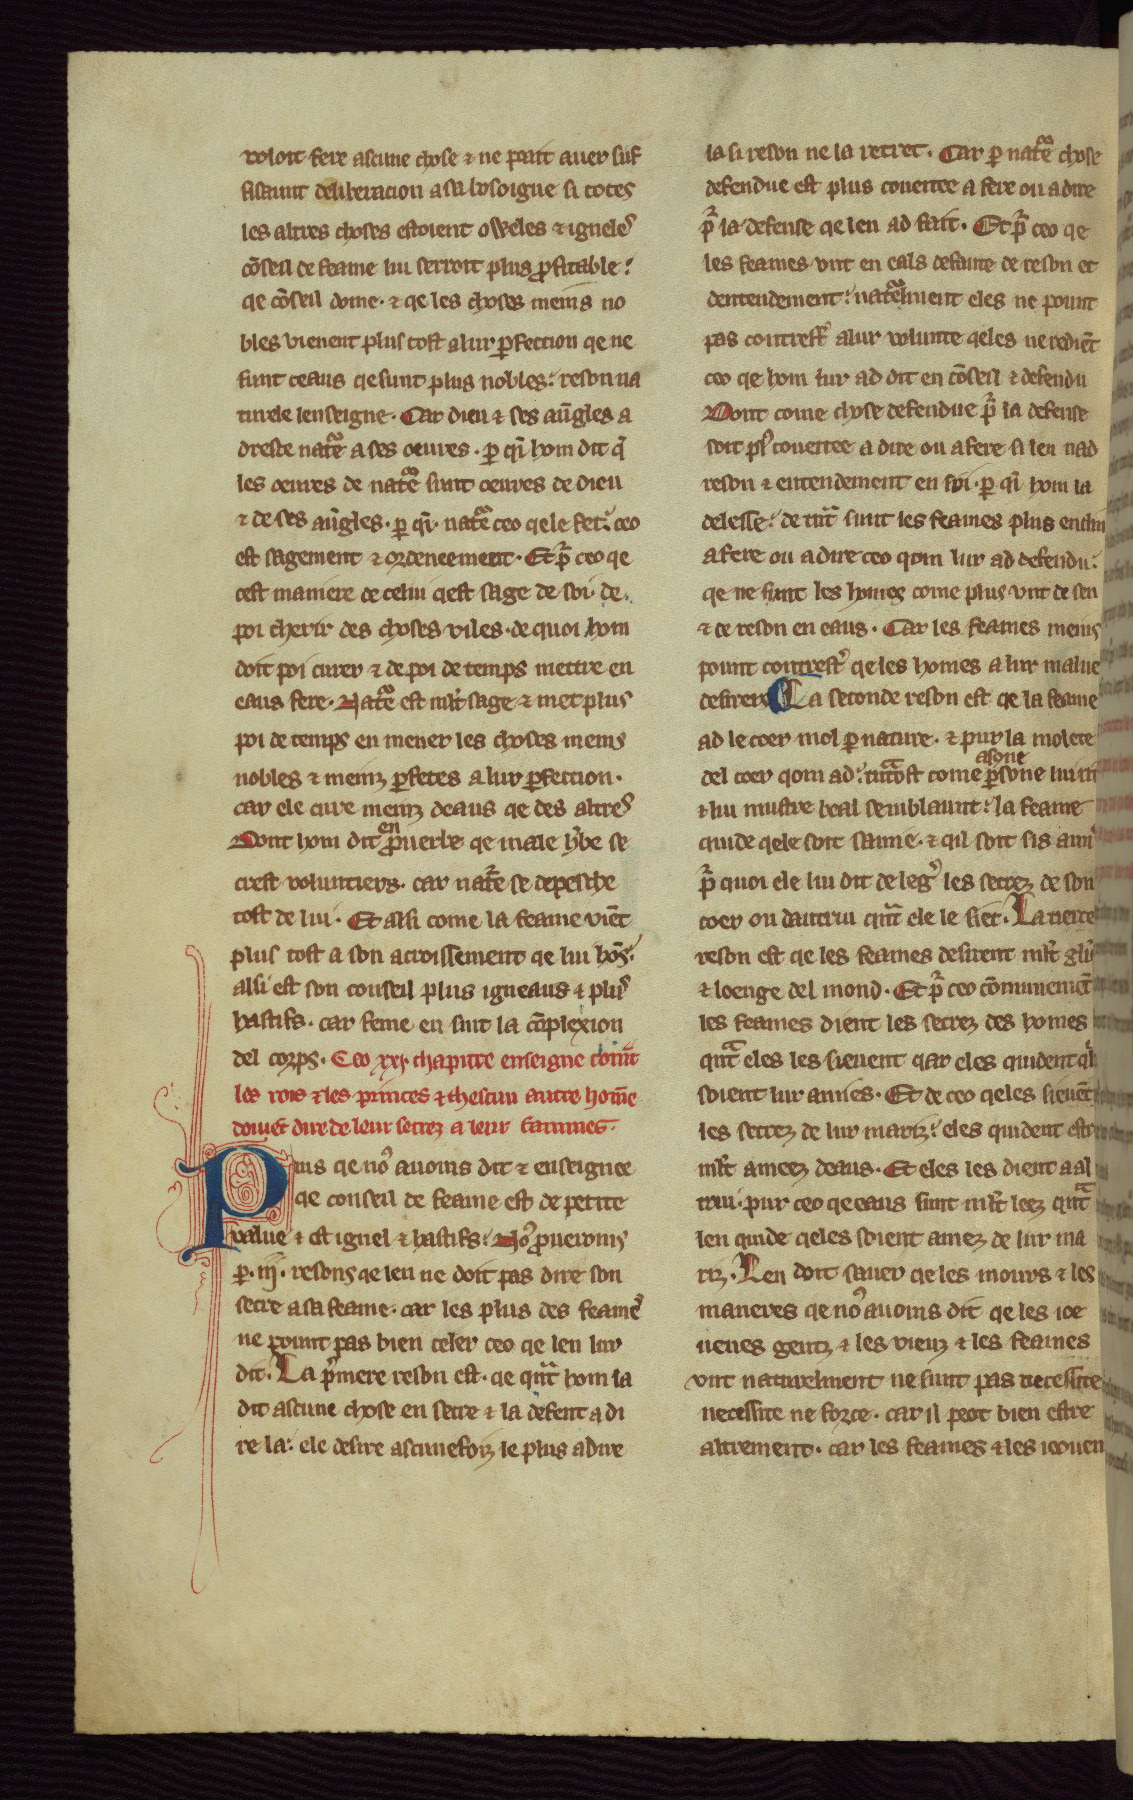 voloit fere ascune chose ⁊ ne poait auer suf
fisaunt deliberacion a sa bosoigne si totes
les altres choses estoient oweles ⁊ igneles
cõseil de feame lui serroit plus ꝓfitable:
qe cõseil dome. ⁊ qe les choses meins no
bles vienent plus tost a lur ꝑfeccion qe ne
funt ceaus qe sunt plus nobles: reson na
turele lenseigne. Car dieu ⁊ ses aũgles a
dresce nature a ses oeures. ꝑ qi hom dit q̃
les oeures de nature sunt oeures de dieu
⁊ de ses aũgles. ꝑ qi nature ceo qe le fet: ceo
est sagement ⁊ ordeneement. Et pr̃ ceo qe
cest maniere de celui qest sage de soi de
poi cherir des choses viles. de quoi hom
doit poi curer ⁊ de poi de temps mettre en
eaus fere. Nature est mlt̃ sage ⁊ met plus
poi de temps en mener les choses meins
nobles ⁊ meinz ꝑfetes a lur ꝑfection.
car ele cure meinz deaus qe des altres
Dont hom dit en ꝓuerbe qe male h̃be se
crest voluntiers. car nature se depesche
tost de lui. Et alsi come la feame viẽt
plus tost a son acroissement qe lui hõs:
alsi est son conseil plus igneaus ⁊ plus
hastifs. car feme en suit la cõplexion
del corps. Ceo xxj chapitre enseigne comt̃
les rois ⁊ les princes ⁊ chescun autre home
doiuẽt dire de leur secrez a leur fammes.
Puis qe nos auoms dit ⁊ enseignee
qe conseil de feame est de petite
value ⁊ est ignel ⁊ hastifs: Nos ꝓueroms
ꝑ .iij. resons qe len ne doit pas dire son
secre a sa feame. car les plus des feames
ne pount pas bien celer ceo qe len lur
dit. La p̃mere reson est. qe qũt hom la
dit ascune chose en secre ⁊ la defent a di
re la: ele desire ascunefoiz le plus a dire
la si reson ne la retret. Car ꝑ nature chose
defendue est plus coueitee a fere ou a dire
pr̃ la defense qe len ad fait. Et pr̃ ceo qe
les feames vnt en eals defaute de reson et
dentendement: naturelment eles ne pount
pas contrest̃ a lur volunte qeles ne rediẽt
ceo qe hom lur ad dit en cõseil ⁊ defendu
Dont come chose defendue pr̃ la defense
soit pl̃ coueitee a dire ou a fere si len nad
reson ⁊ entendement en soi. ꝑ qi hom la
delesse: de tãt sunt les feames plus enclin
a fere ou a dire ceo qom lur ad defendu:
qe ne sunt les homes come plus vnt de sen
⁊ de reson en eaus. Car les feames meins
pount contrest̃ qe les homes a lur malue
desirers La seconde reson est qe la feame
ad le coer mol ꝑ nature. ⁊ pur la molete
del coer qom ad: tãtost come asone ꝑsone lui rit
⁊ lui mustre beal semblaunt: la feame
quide qele soit samie. ⁊ qil soit sis ami
pr̃ quoi ele lui dit de leg̃ les secrez de son
coer ou dautrui qãt ele le siet. La tierce
reson est qe les feames desirent mlt̃ glĩ
⁊ loenge del mond. Et pr̃ ceo cõmunemẽt
les feames dient les secrez des homes
qãt eles les sieuent qar eles quident qil
soient lur amies. Et de ceo qeles sieuẽt
les secrez de lur mariz: eles quident estr̃
mlt̃ ameez deaus. Et eles les dient a al
trui. pur ceo qe eaus sunt mlt̃ leez qãt
len quide qeles soient amez de lur ma
riz. Len doit sauer qe les mours ⁊ les
maneres qe nos auoms dit qe les ioe
uenes gentz ⁊ les vieuz ⁊ les feames
vnt naturelment ne sunt pas necessite
necessite ne force. car il peot bien estre
altrement. car les feames ⁊ les ioouen